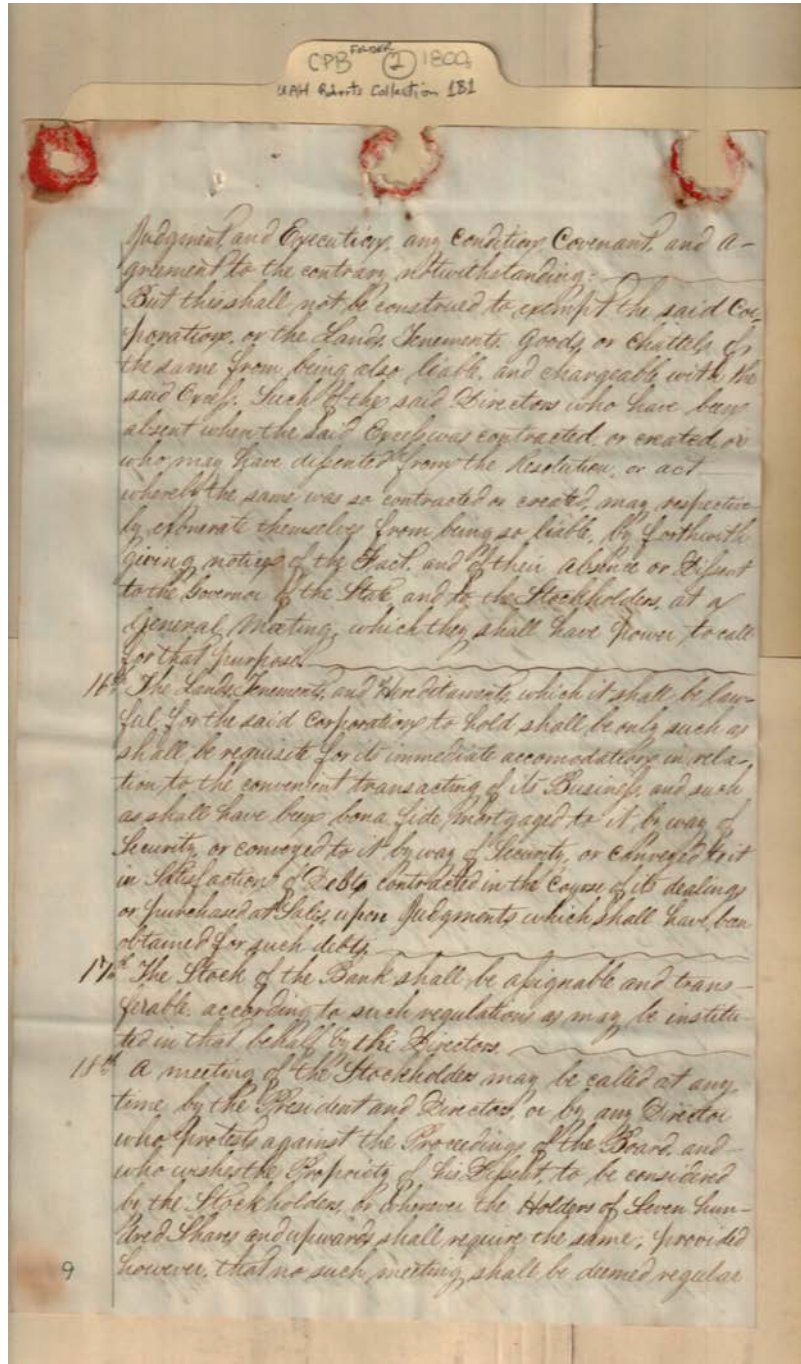 CPB FOLDER 2 1809
UAH Roberts Collection 181
Judgment, and Execution, any Condition, Covenant, and A-
greement to the contrary notwithstanding.
But this shall not be construed to exempt the said Cor-
poration, or the Lands, Tenements, Goods, or Chattels of
the same from being also liable, and chargeable with the
said Excess. Such of the said Directors who have been
absent when the said Excess was contracted, or created, or
who may have dissented from the Resolution, or act
whereby the same was so contracted or created, may respective-
ly exonerate themselves from being so liable, by forthwith
giving notice of the Fact, and of their absence or Dissent
to the Governor of the State, and to the Stockholders, at a
General Meeting, which they shall have power to call
for that purpose.
16th The Lands, Tenements, and Hereditaments, which it shall be law-
ful for the said Corporation to hold shall be only such as
shall be requisite for its immediate accomodation in rela-
tion to the convenient transacting of its Business, and such
as shall have been bona fide mortgaged to it by way of
Security, or conveyed to it by way of Security, or conveyed to it
in Satisfaction of Debts contracted in the Course of its dealings
or purchased at Sales, upon Judgments which shall have been
obtained for such debts.
17th The Stock of the Bank shall be assignable and trans-
ferable, according to such regulations as may be institu-
ted in that behalf by the Directors.
18th A meeting of the Stockholders may be called at any
time by the President and Directors, or by any Director
who protests against the Proceedings of the Board, and
who wishes the Propriety of his Dissent, to be considered
by the Stockholders, or whenever the Holders of Seven hun-
dred Shares and upwards shall require the same; provided
however, that no such meeting shall be deemed regular
9